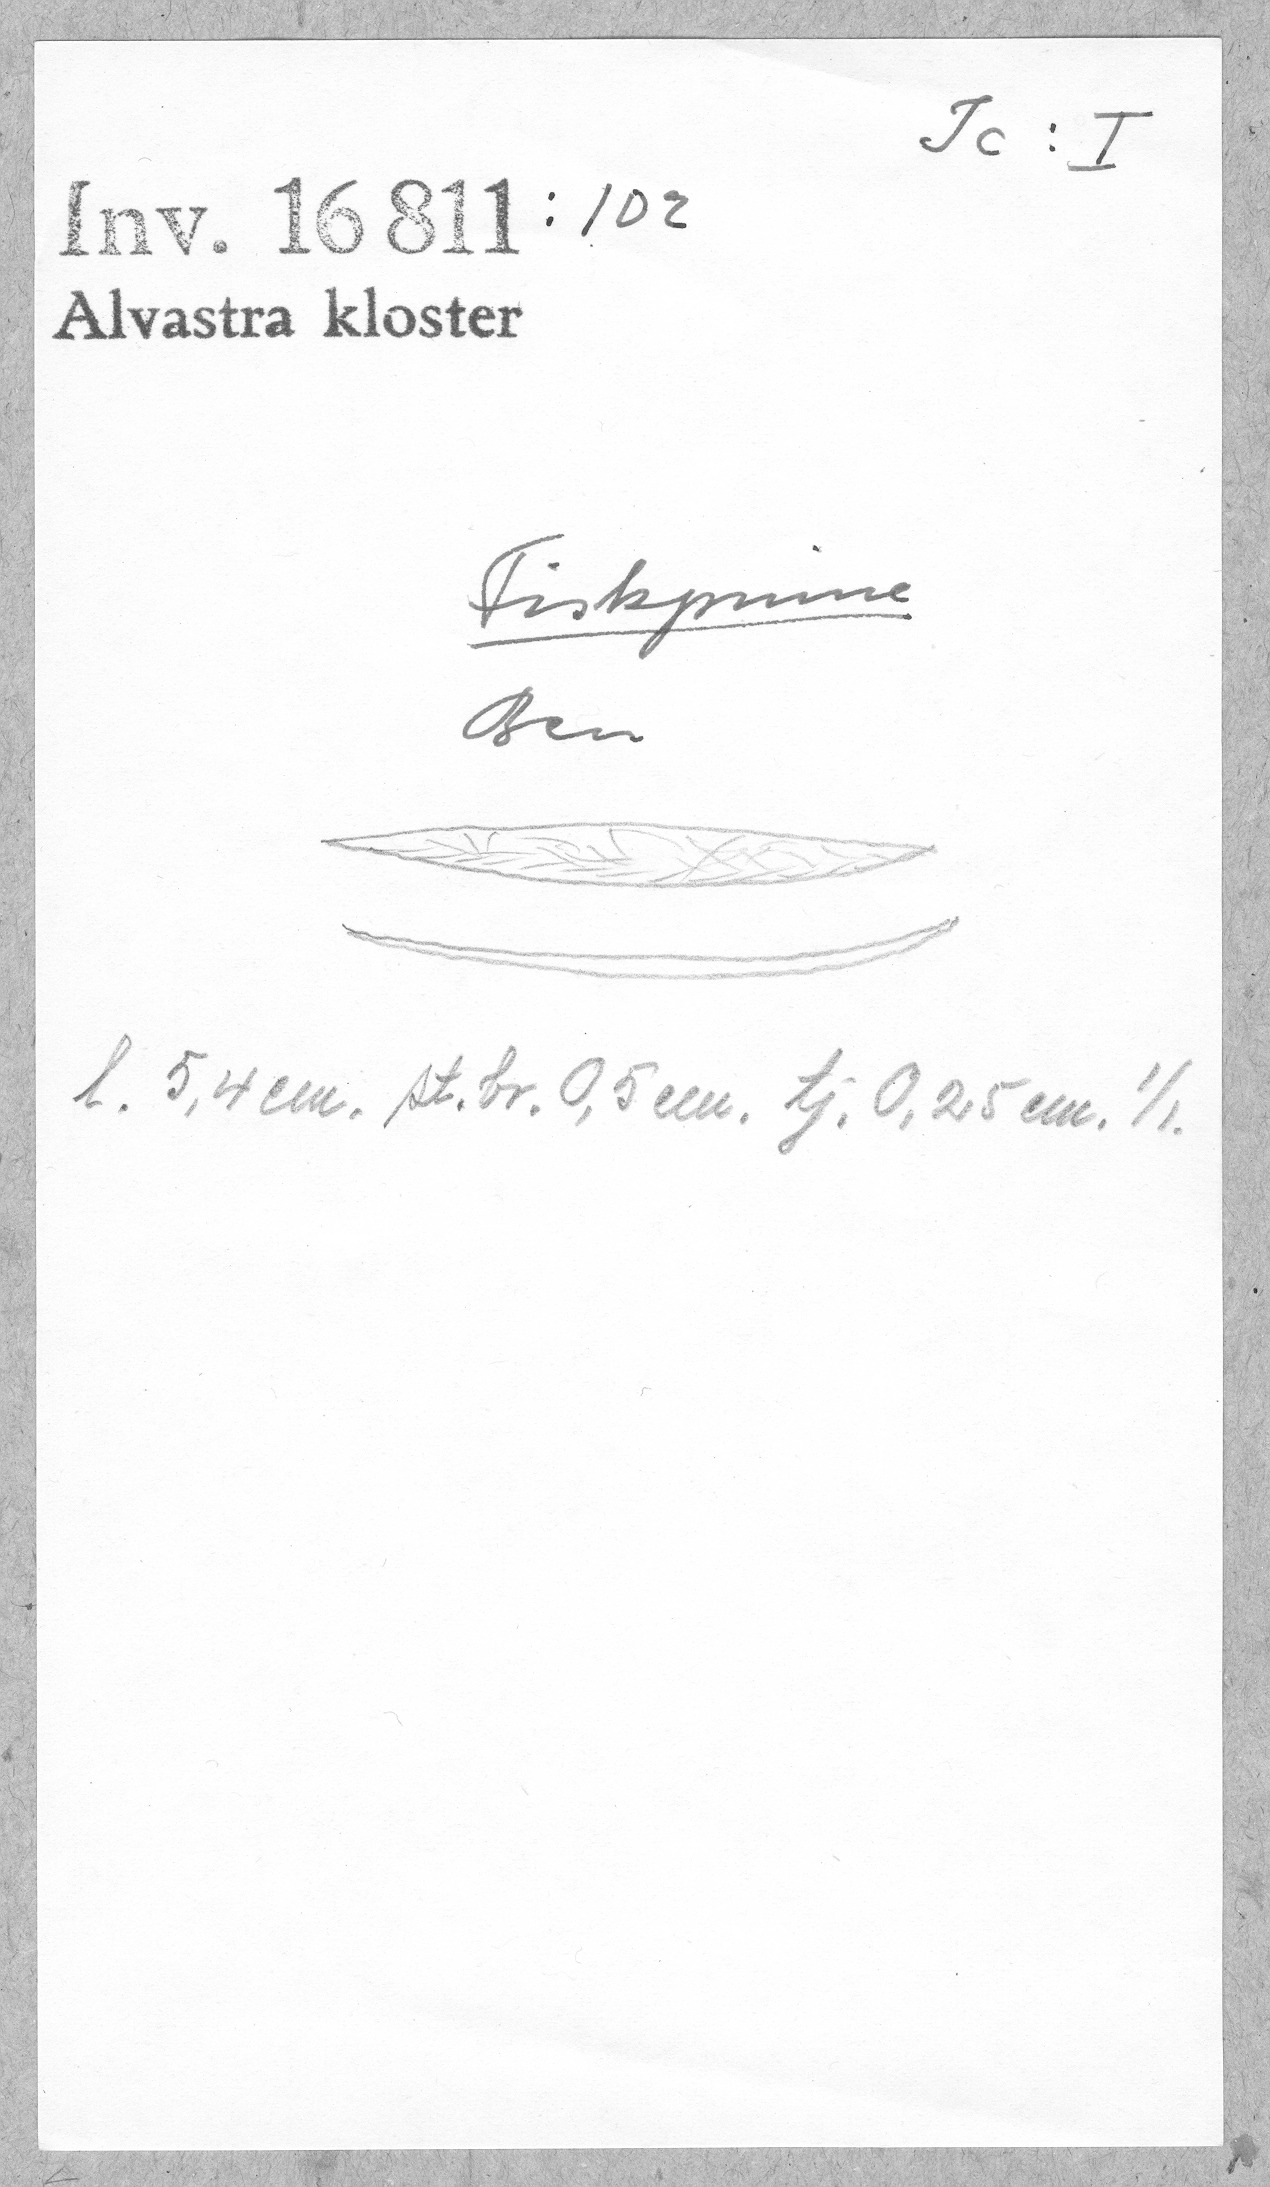 Jc : I
Inv. 16 811 : 102
Alvastra kloster
Fiskpinne
Ben
l. 5,4 cm. st. br. 0,5 cm. tj. 0,25 cm. 1/1.